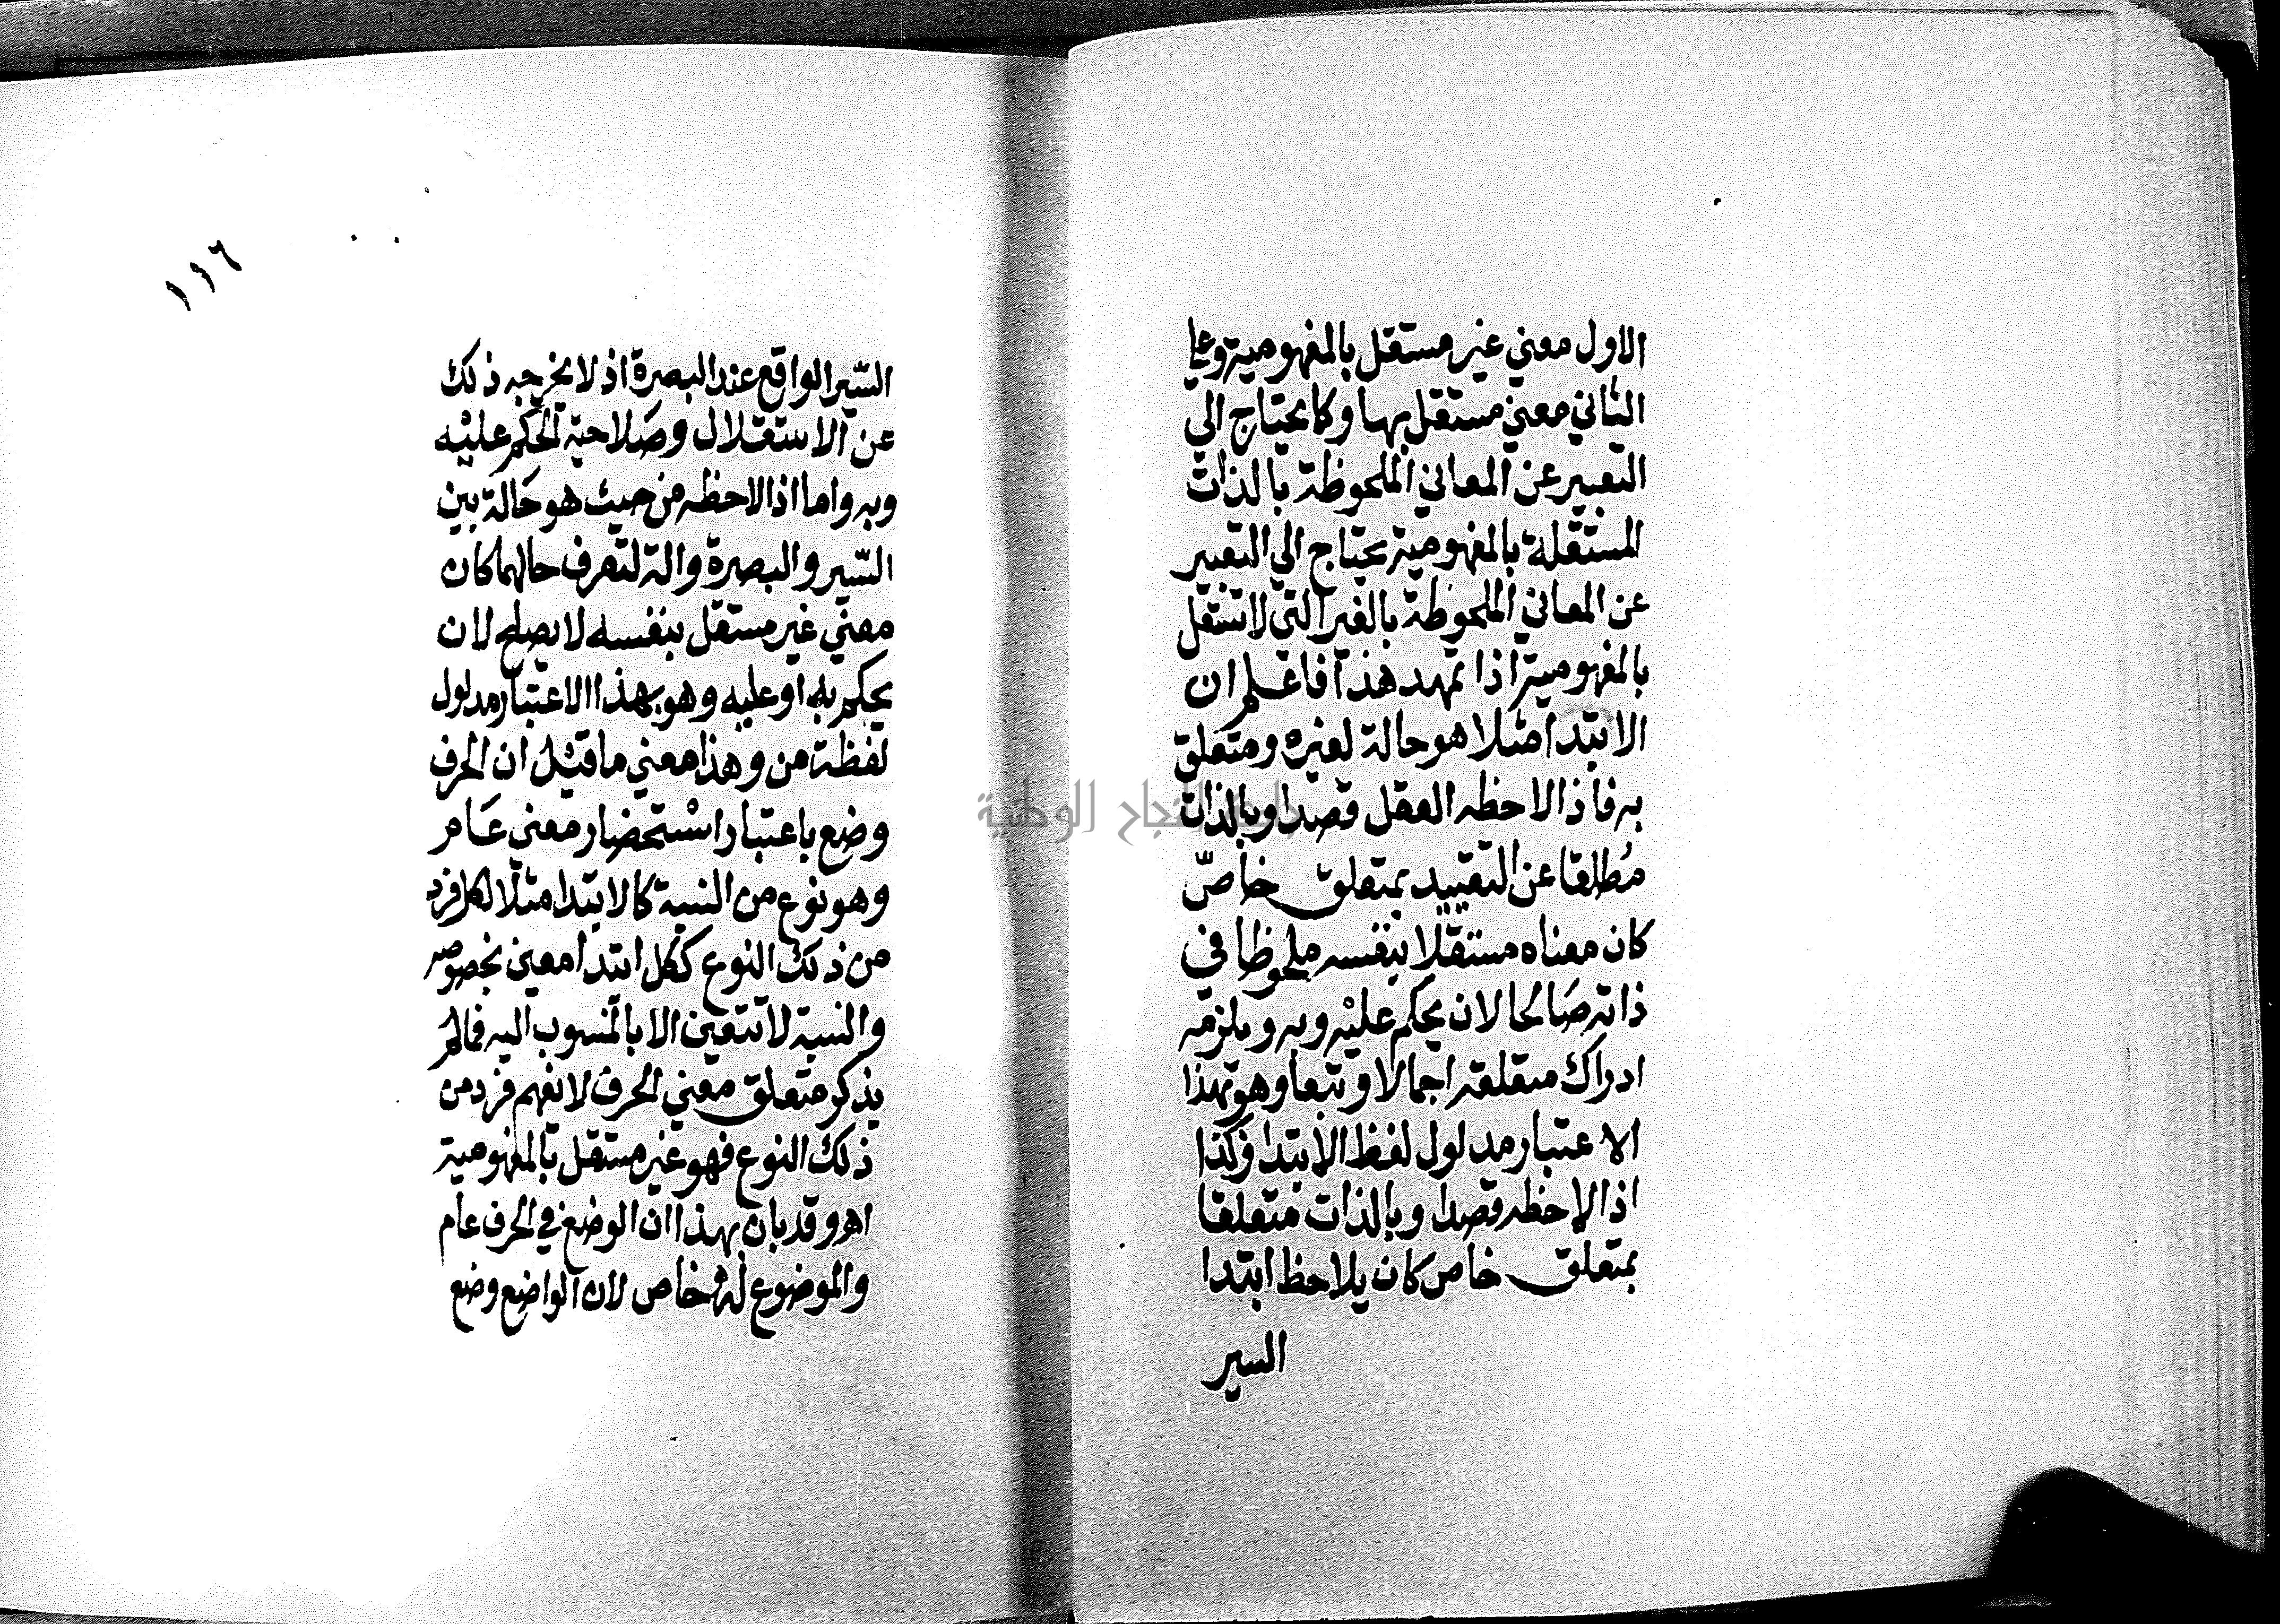 الاول معني غير مستقل بالمفهومية وعلي
الثاني معني مستقل بها وكما يحتاج الي
التعبير عن المعاني الملحوظة بالذات
المستقلة بالمفهومية يحتاج الي التعبير
عن المعاني الملحوظة بالغير التي لا تستقل
بالمفهومية اذا تمهد هذا فاعلم ان
الابتدا مثلا هو حالة لغيره ومتعلق
به فاذا لاحظه العقل قصدا وبالذات
مُطلقا عن التقييد بمتعلق خاصّ
كان معناه مستقلا بنفسه ملحوظا في
ذاته صَالحا لان يحكم عليْه وبه ويلزمه
ادراك متعلقه اجمالا وتبعا وهو بهذا
الاعتبار مدلول لفظ الابتدا وكذا
اذا لاحظه قصدا وبالذات متعلقا
بمتعلق خاص كان يلاحظ ابتدا
السير
١١٦
السّير الواقع عند البصرة اذ لا يخرجه ذلك
عن الاستقلال وصَلاحية الحكم عليْه
وبه واما اذا لاحظه من حيث هو حَالة بين
السّير والبصرة والة لتعرف حالهما كان
معني غير مستقل بنفسه لا يصلح لان
يحكم به او عليه وهو بهذا الاعتبار مدلول
لفظة من وهذا معني ما قيل ان الحرف
وضع باعتبار اسْتحضار معني عَام
وهو نوع من النسبة كالابتدا مثلا لكل فرد
من ذلك النوع ككل ابتدا معين بخصوصه
والنسبة لا تتعين الا بالمنسوب اليه فما لم
يذكر متعلق معني الحرف لا يفهم فرد من
ذلك النوع فهو غير مستقل بالمفهومية
اهـ وقد بان بهذا ان الوضع في الحرف عام
والموضوع له خاص لان الواضع وضع
جامعة النجاح الوطنية